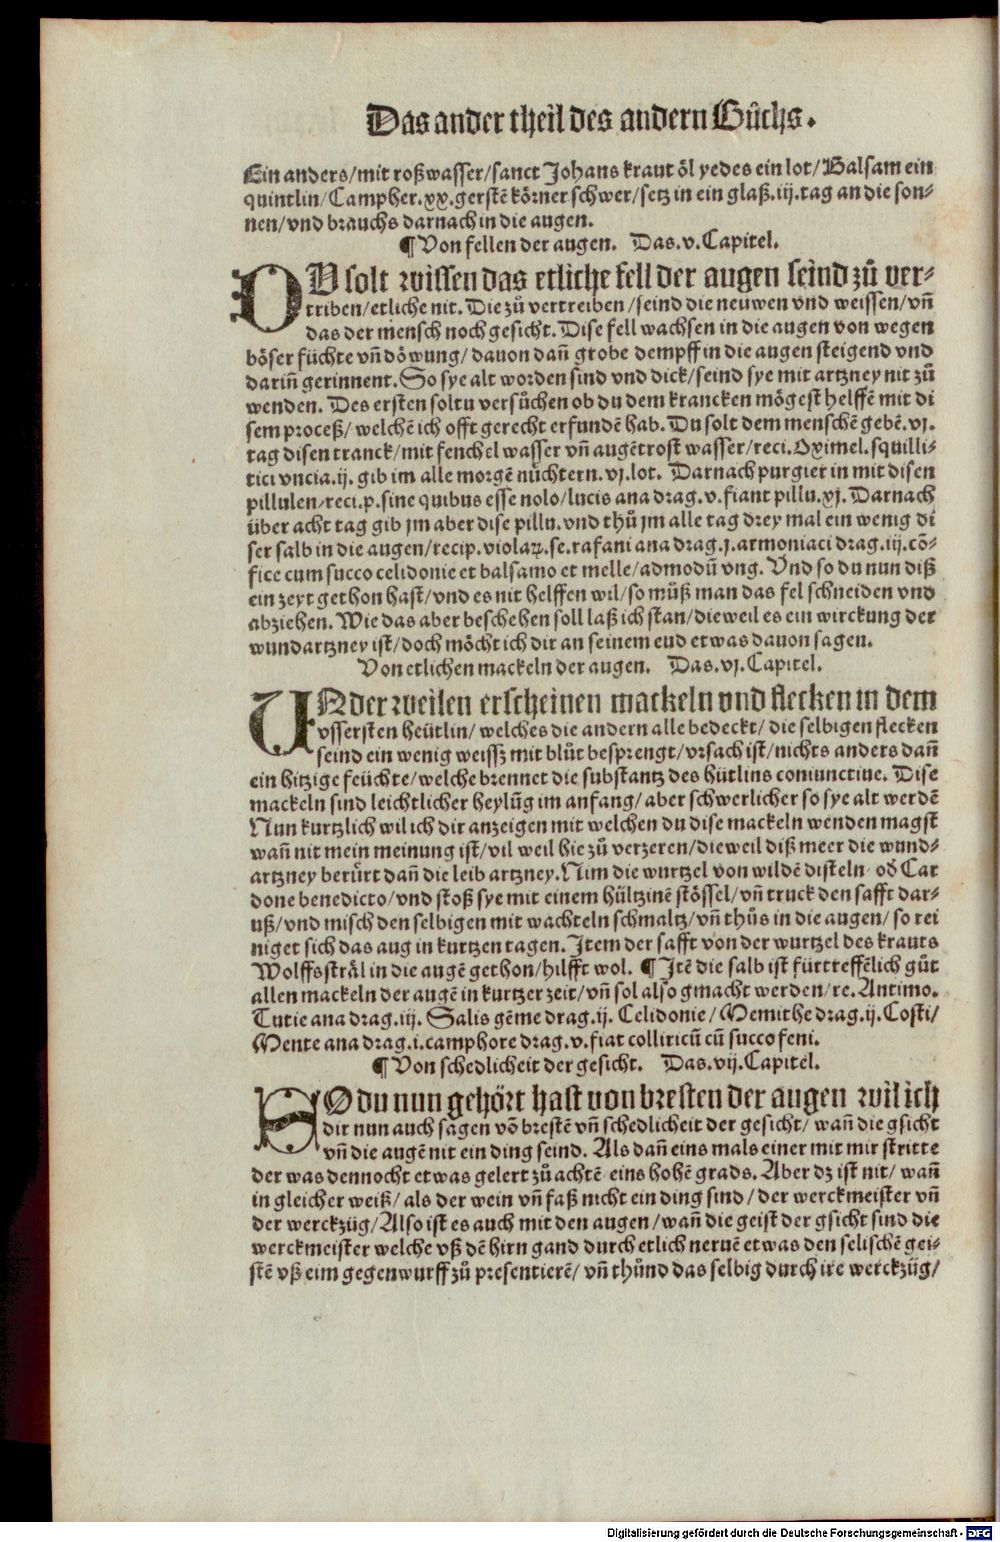 Das ander theil des andern Bůchs.
Ein anders/mit roßwasser/sanct Johans kraut öl yedes ein lot/Balsam ein
quintlin/Campher.xx.gerstē körner schwer/setz in ein glaß.iij.tag an die son-
nen/vnd brauchs darnach in die augen.
¶Von fellen der augen. Das.v.Capitel.
DU solt wissen das etliche fell der augen seind zů ver-
triben/etliche nit. Die zů vertreiben/seind die neuwen vnd weissen/vn̄
das der mensch noch gesicht. Dise fell wachsen in die augen von wegen
böser füchte vn̄ döwung/dauon dan̄ grobe dempff in die augen steigend vnd
darin̄ gerinnent. So sye alt worden sind vnd dick/seind sye mit artzney nit zů
wenden. Des ersten soltu versůchen ob du dem krancken mögest helffē mit di
sem proceß/welchē ich offt gerecht erfundē hab. Du solt dem menschē gebē.vj.
tag disen tranck/mit fenchel wasser vn̄ augētrost wasser/reci.Oximel.squilli-
tici vncia.ij.gib im alle morgē nüchtern.vj.lot. Darnach purgier in mit disen
pillulen/reci.p.sine quibus esse nolo/lucis ana drag.v.fiant pillu.xj. Darnach
über acht tag gib jm aber dise pillu.vnd thů jm alle tag drey mal ein wenig di
ser salb in die augen/recip.violaꝝ.se.rafani ana drag.j.armoniaci drag.iij.cō-
fice cum succo celidonie et balsamo et melle/ad modū vng. Vnd so du nun diß
ein zeyt gethon hast/vnd es nit helffen wil/so můß man das fel schneiden vnd
abziehen. Wie das aber beschehen soll laß ich stan/dieweil es ein wirckung der
wundartzney ist/doch möcht ich dir an seinem end etwas dauon sagen.
Von etlichen mackeln der augen. Das.vj.Capitel.
UNder weilen erscheinen mackeln vnd flecken in dem
vssersten heütlin/welches die andern alle bedeckt/die selbigen flecken
seind ein wenig weissz mit blůt besprengt/vrsach ist/nichts anders dan̄
ein hitzige feüchte/welche brennet die substantz des hütlins coniunctiue. Dise
mackeln sind leichtlicher heylūg im anfang/aber schwerlicher so sye alt werdē
Nun kurtzlich wil ich dir anzeigen mit welchen du dise mackeln wenden magst
wan̄ nit mein meinung ist/vil weil hie zů verzeren/dieweil diß meer die wund-
artzney berürt dan̄ die leib artzney. Nim die wurtzel von wildē disteln od̄ Car
done benedicto/vnd stoß sye mit einem hültzinē stössel/vn̄ truck den safft dar-
uß/vnd misch den selbigen mit wachteln schmaltz/vn̄ thůs in die augen/so rei
niget sich das aug in kurtzen tagen. Item der safft von der wurtzel des krauts
Wolffssträl in die augē gethon/hilfft wol. ¶Itē die salb ist fürtreffēlich gůt
allen mackeln der augē in kurtzer zeit/vn̄ sol also gmacht werden/re. Antimo.
Tutie ana drag.iij. Salis gēme drag.ij. Celidonie/Memithe drag.ij. Costi/
Mente ana drag.i.camphore drag.v.fiat colliricū cū succo feni.
¶Von schedlicheit der gesicht. Das.vij.Capitel.
SO du nun gehört hast von bresten der augen wil ich
dir nun auch sagen vō brestē vn̄ schedlicheit der gesicht/wan̄ die gsicht
vn̄ die augē nit ein ding seind. Als dan̄ eins mals einer mit mir stritte
der was dennocht etwas gelert zů achtē eins hohē grads. Aber dz ist nit/wan̄
in gleicher weiß/als der wein vn̄ faß nicht ein ding sind/der werckmeister vn̄
der werckzüg/Also ist es auch mit den augen/wan̄ die geist der gsicht sind die
werckmeister welche vß dē hirn gand durch etlich neruē etwas den selischē gei-
stē vß eim gegenwurff zů presentierē/vn̄ thůnd das selbig durch ire werckzüg/
Digitalisierung gefördert durch die Deutsche Forschungsgemeinschaft - DFG